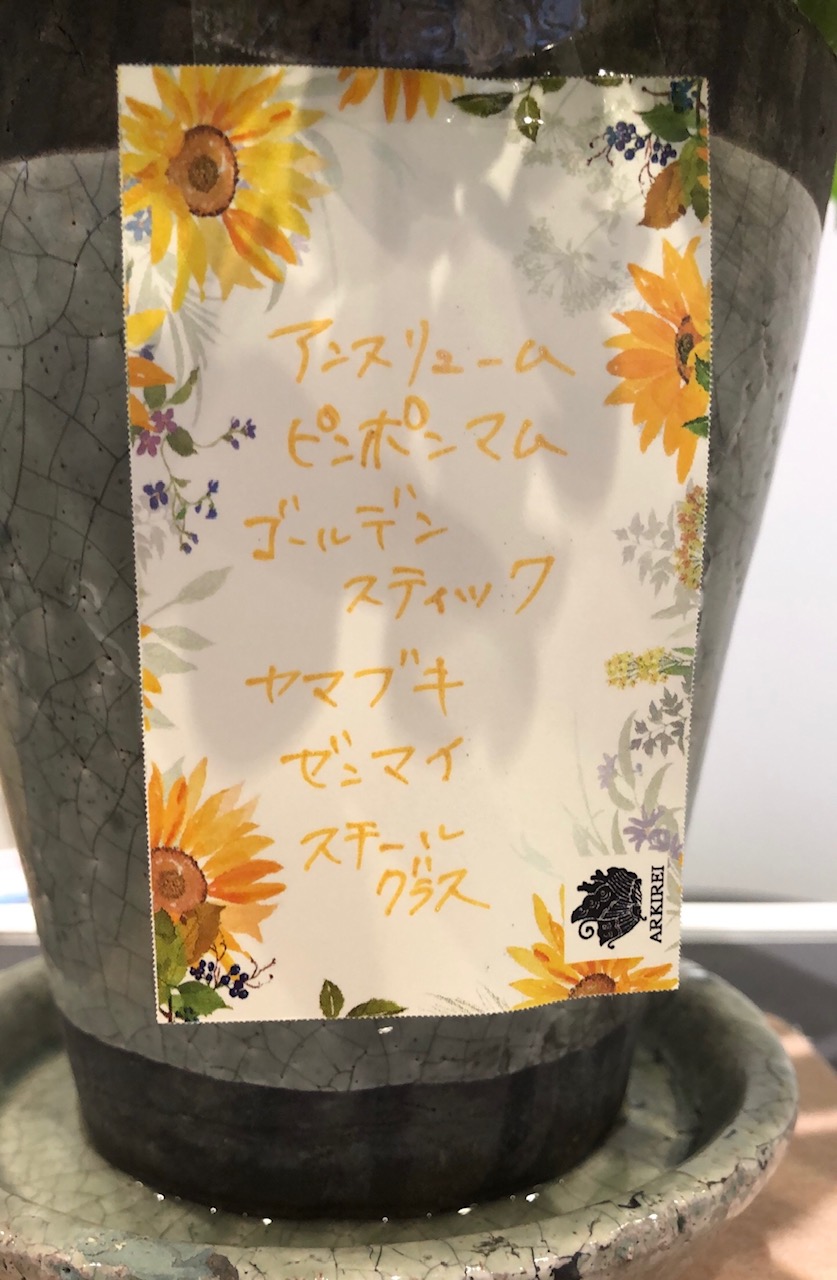 アンスリューム
ピンポンマム
ゴールデン
スティック
ヤマブキ
ゼンマイ
スチール
グラス
ARKIREI